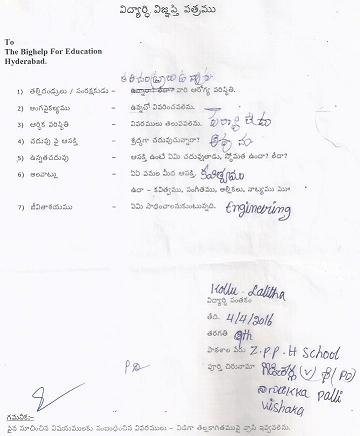 విద్యార్థి విజ్ఞప్తి పత్రము
To
The Bighelp For Education
Hyderabad.
1) తల్లిదండ్రులు / సంరక్షకుడు - ఉన్నారా? లేదా? వారి ఆరోగ్య పరిస్థితి.
2) అంగవైకల్యము - ఉన్నచో వివరించవలెను.
3) ఆర్థిక పరిస్థితి - వివరములు తెలుపవలెను.
4) చదువు పై ఆసక్తి - శ్రద్ధగా చదువుచున్నారా? అవును
5) ఉన్నతచదువు - ఆసక్తి ఉంటే ఏమి చదువుతాడు, స్తోమత ఉందా? లేదా?
6) అలవాట్లు - ఏఏ పనుల మీద ఆసక్తి.
ఉదా - కవిత్వము, సంగీతము, అల్లికలు, నాట్యము
7) జీవితాశయము - ఏమి సాధించాలనుకుంటున్నది. Engineering
Kollu. Lalitha
విద్యార్థి సంతకం
తేది. 4/4/2016
తరగతి 9th
పాఠశాల పేరు Z.P.P.H School
పూర్తి చిరునామా (V) (PO)
palli
Vishaka
గమనిక:-
పైన సూచించిన విషయములకు సంబంధించిన వివరములు - విడిగా తెల్లకాగితముపై వ్రాసి ఇవ్వవలెను.